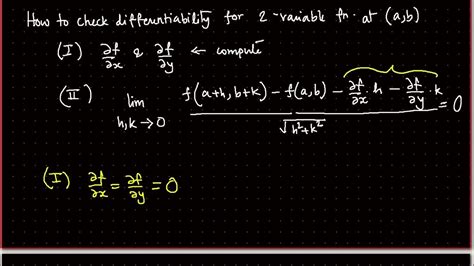 How to check differentiability for 2-variable fn. at (a,b)
(I) ∂f/∂x & ∂f/∂y ← compute
(II) lim h,k→0 (f(a+h, b+k) − f(a,b) − ∂f/∂x · h − ∂f/∂y · k) / √(h²+k²) = 0
(I) ∂f/∂x = ∂f/∂y = 0